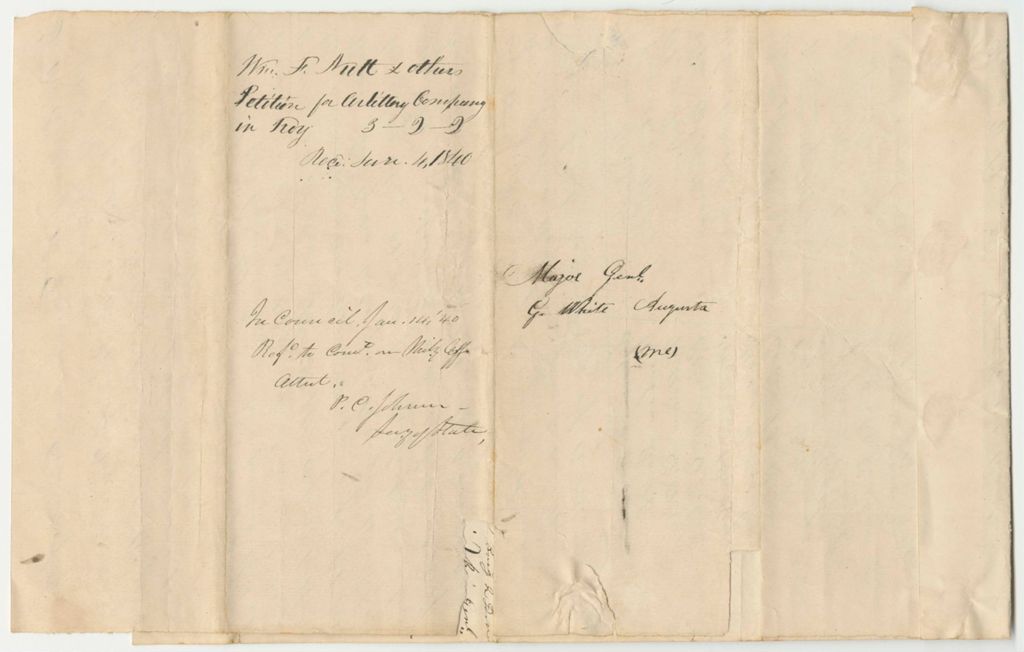 Wm. F. Nutt & others
Petition for Artillery Company
in Troy 3-2-2
Recd. Jan. 4, 1840
In Council, Jan. 14, '40
Refd. to Come. on Mily Affs
Attest,
P. C. Johnson
Secy of State,
Major Genl.
G. White Augusta
(Me)